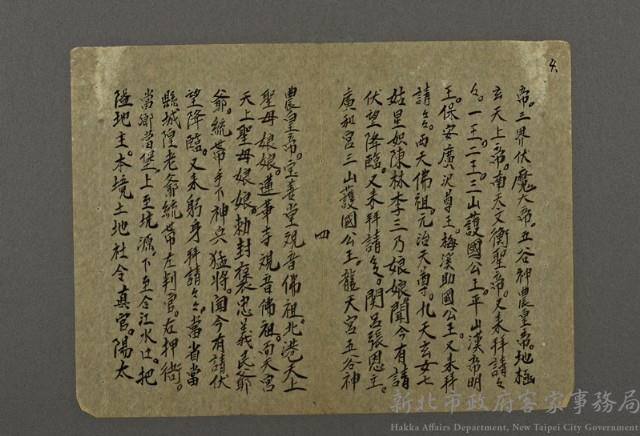 4.
帝。三界伏魔大帝。五谷神農皇帝。地極
玄天上帝。南天文衡聖帝。又来拜請々
々。一王。二王。三山護國公王。平山漢帝明
王。保安廣沢尊王。梅溪助國公王又来拜
請々。西天佛祖。元治天尊。九天玄女七
姑星娘陳林李三乃娘娘聞今有請
伏望降臨。又来拜請々。関呂張恩主。
廣和宮三山護國公王。龍天宮五谷神
四
農皇帝。宝善堂观音佛祖。北港天上
聖母娘娘。蓮華寺观音佛祖。西天宮
天上聖母娘娘。勅封褒忠義民爺
爺。統帶手下神兵猛將。聞今有請伏
望降臨。又来躬身拜請々々。當省當
縣城隍老爺統帶左判官。右押衙。
當鄉當堡上至坑源下至合江水口。把
隘地主。本境土地社令真官。陽太
新北市政府客家事務局
Hakka Affairs Department, New Taipei City Government